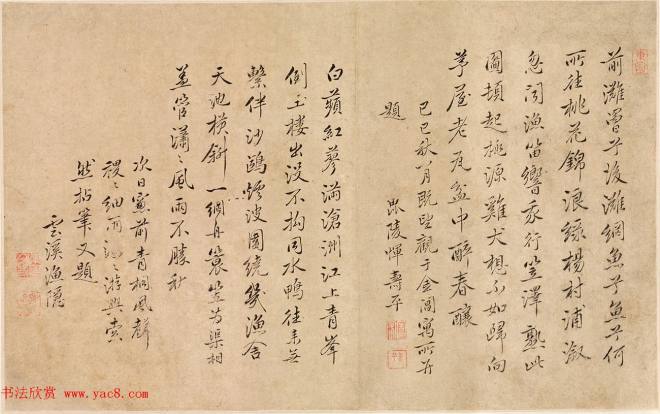 前灘罾兮後灘網魚兮魚兮何
所往桃花錦浪綠楊村浦漵
忽聞漁笛響我行笠澤熟此
圖頓起桃源雞犬想不如歸向
茅屋老瓦盆中醉春釀
己巳秋八月既望觀于金閶寓所并
題 毗陵惲壽平
白蘋紅蓼滿滄洲江上青峯
倒玉樓出沒不拘同水鴨往來無
繫伴沙鷗煙波圍繞幾漁舍
天池橫斜一網舟蓑笠為渠相
蓋管瀟〻風雨不勝秋
次日窗前青桐風聲
稷〻細雨〻游興索
然拈筆又題
雲溪漁隱
书法欣赏 www.yac8.com